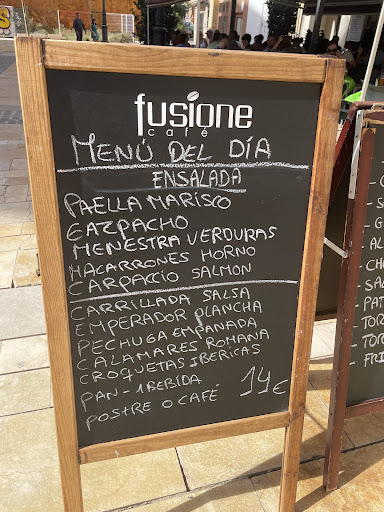 fusione
café
MENÚ DEL DÍA
ENSALADA
PAELLA MARISCO
GAZPACHO
MENESTRA VERDURAS
MACARRONES HORNO
CARPACCIO SALMON
CARRILLADA SALSA
EMPERADOR PLANCHA
PECHUGA EMPANADA
CALAMARES ROMANA
CROQUETAS IBERICAS
PAN - 1 BEBIDA
POSTRE O CAFÉ 14€